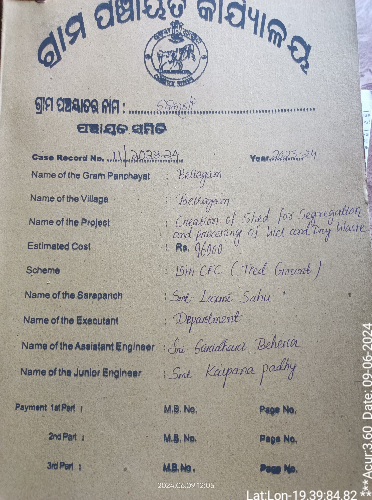 ଗ୍ରାମ ପଞ୍ଚାୟତ କାର୍ଯ୍ୟାଳୟ
ଗ୍ରାମ ପଞ୍ଚାୟତର ନାମ :
ପଞ୍ଚାୟତ ସମିତି
Case Record No. 11/2023-24 Year 2023-24
Name of the Gram Panchayat : Bellagam
Name of the Village : Bellagam
Name of the Project : Creation of Shed for Segregation
and processing of Wet and Dry Waste
Estimated Cost : Rs. 96000
Scheme : 15th CFC (Tied Grant)
Name of the Sarapanch : Smt Laxmi Sahu
Name of the Executant : Department
Name of the Assistant Engineer : Sri Behera
Name of the Junior Engineer : Smt Kalpana padhy
Payment 1st Part : M.B. No. Page No.
2nd Part : M.B. No. Page No.
3rd Part : M.B. No. Page No.
2024.06.09 12:05
Lat:Lon-19.39:84.82
***Acur:3.60 Date: 09-06-2024